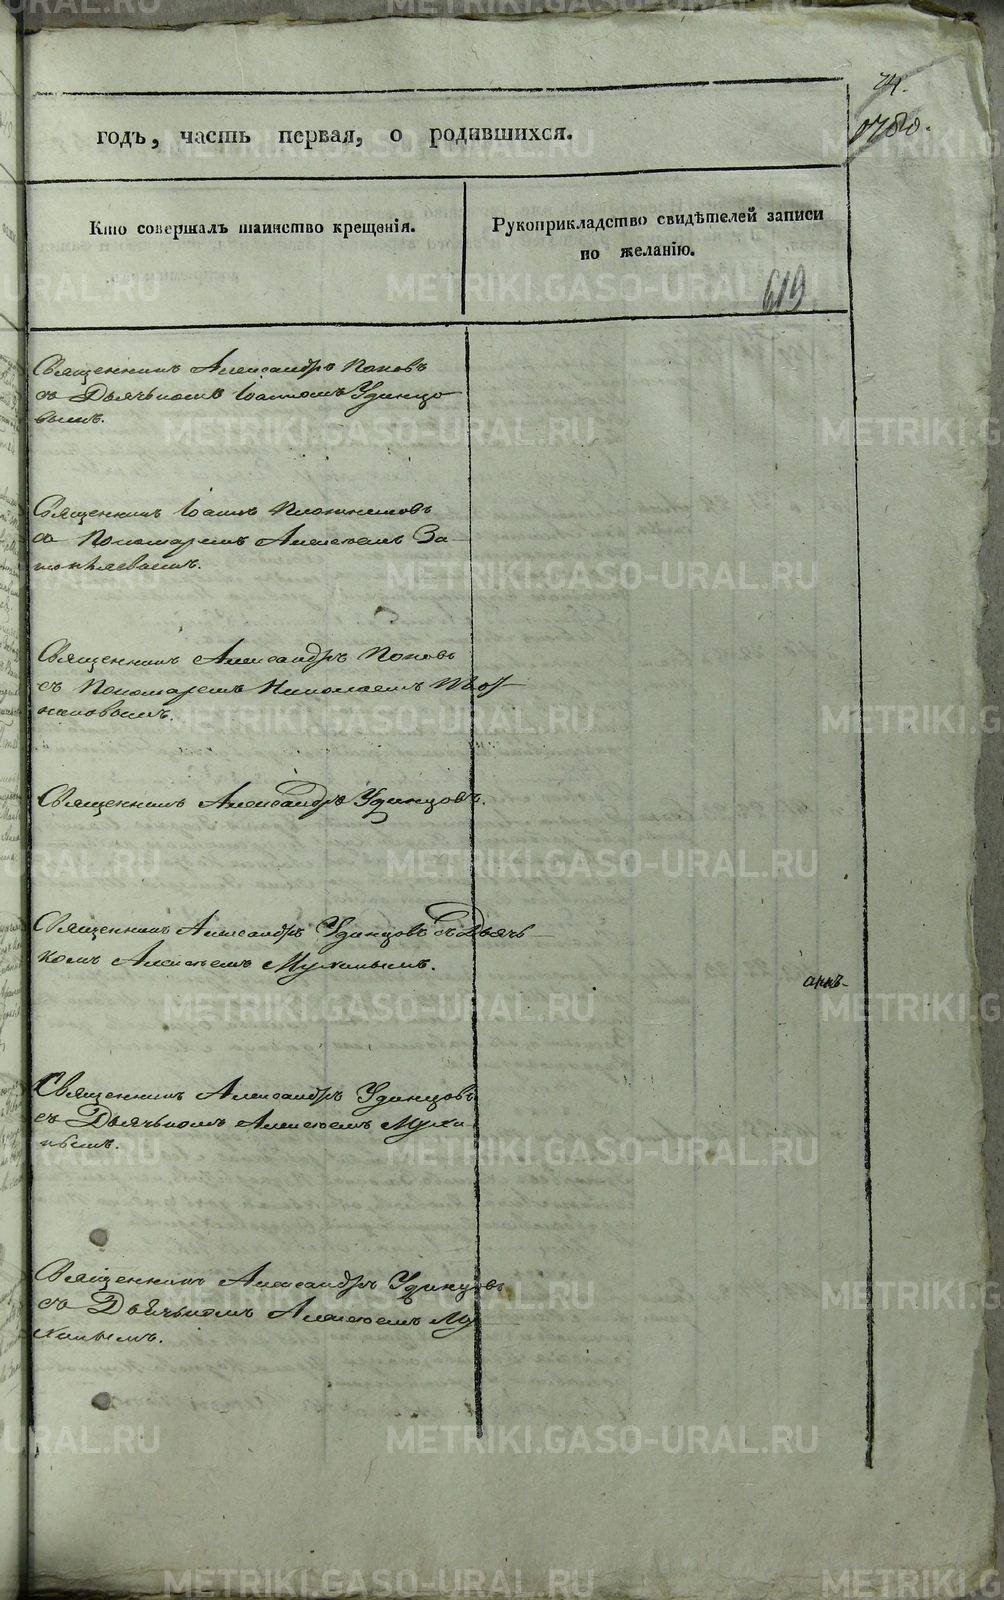 74.
годъ, часть первая, о родившихся.
Кто совершалъ таинство крещенія.
Рукоприкладство свидѣтелей записи
по желанію.
619
Священникъ Александръ Поповъ
съ Дьячькомъ Іоанномъ Удинцо
вымъ.
Священникъ Іоаннъ Плотниковъ
съ Пономаремъ Алексѣемъ За-
топляевымъ.
Священникъ Александръ Поповъ
съ Пономаремъ Николаемъ
Священникъ Александръ Удинцовъ.
Священникъ Александръ Удинцовъ съ Дьячь
комъ Алексѣемъ Мухинымъ.
Священникъ Александръ Удинцовъ
съ Дьячькомъ Алексѣемъ Мухи-
нымъ.
Священникъ Александръ Удинцовъ
съ Дьячькомъ Алексѣемъ Му-
хинымъ.
METRIKI.GASO-URAL.RU